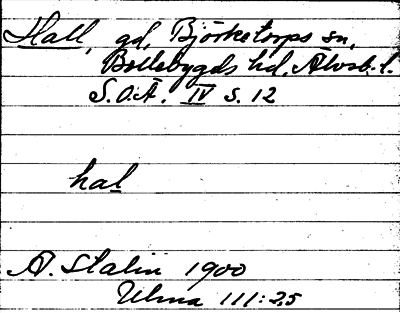 Hall, gd, Björketorps sn,
Bollebygds hd, Älvsb. l.
S.O.Ä. IV s. 12
hal
A. Stalin 1900
Ulma 111:25